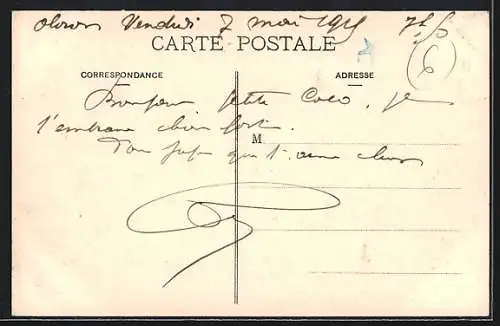 Oloron Vendredi 7 mai 1915
CARTE POSTALE
CORRESPONDANCE
ADRESSE
6
Bonjour petite Coco, je
t'embrasse bien fort.
M
Ton qui t'aime